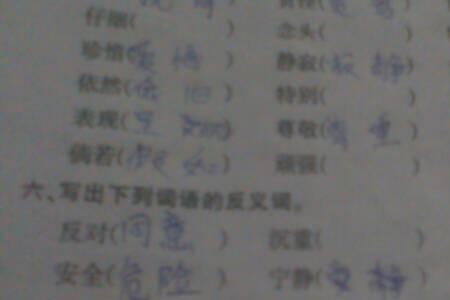 仔细(      )  念头(      )
珍惜(爱惜)  静寂(寂静)
依然(依旧)  特别(      )
表现(      )  尊敬(尊重)
倘若(假如)  顽强(      )
六、写出下列词语的反义词。
反对(同意)  沉重(      )
安全(危险)  宁静(安静)